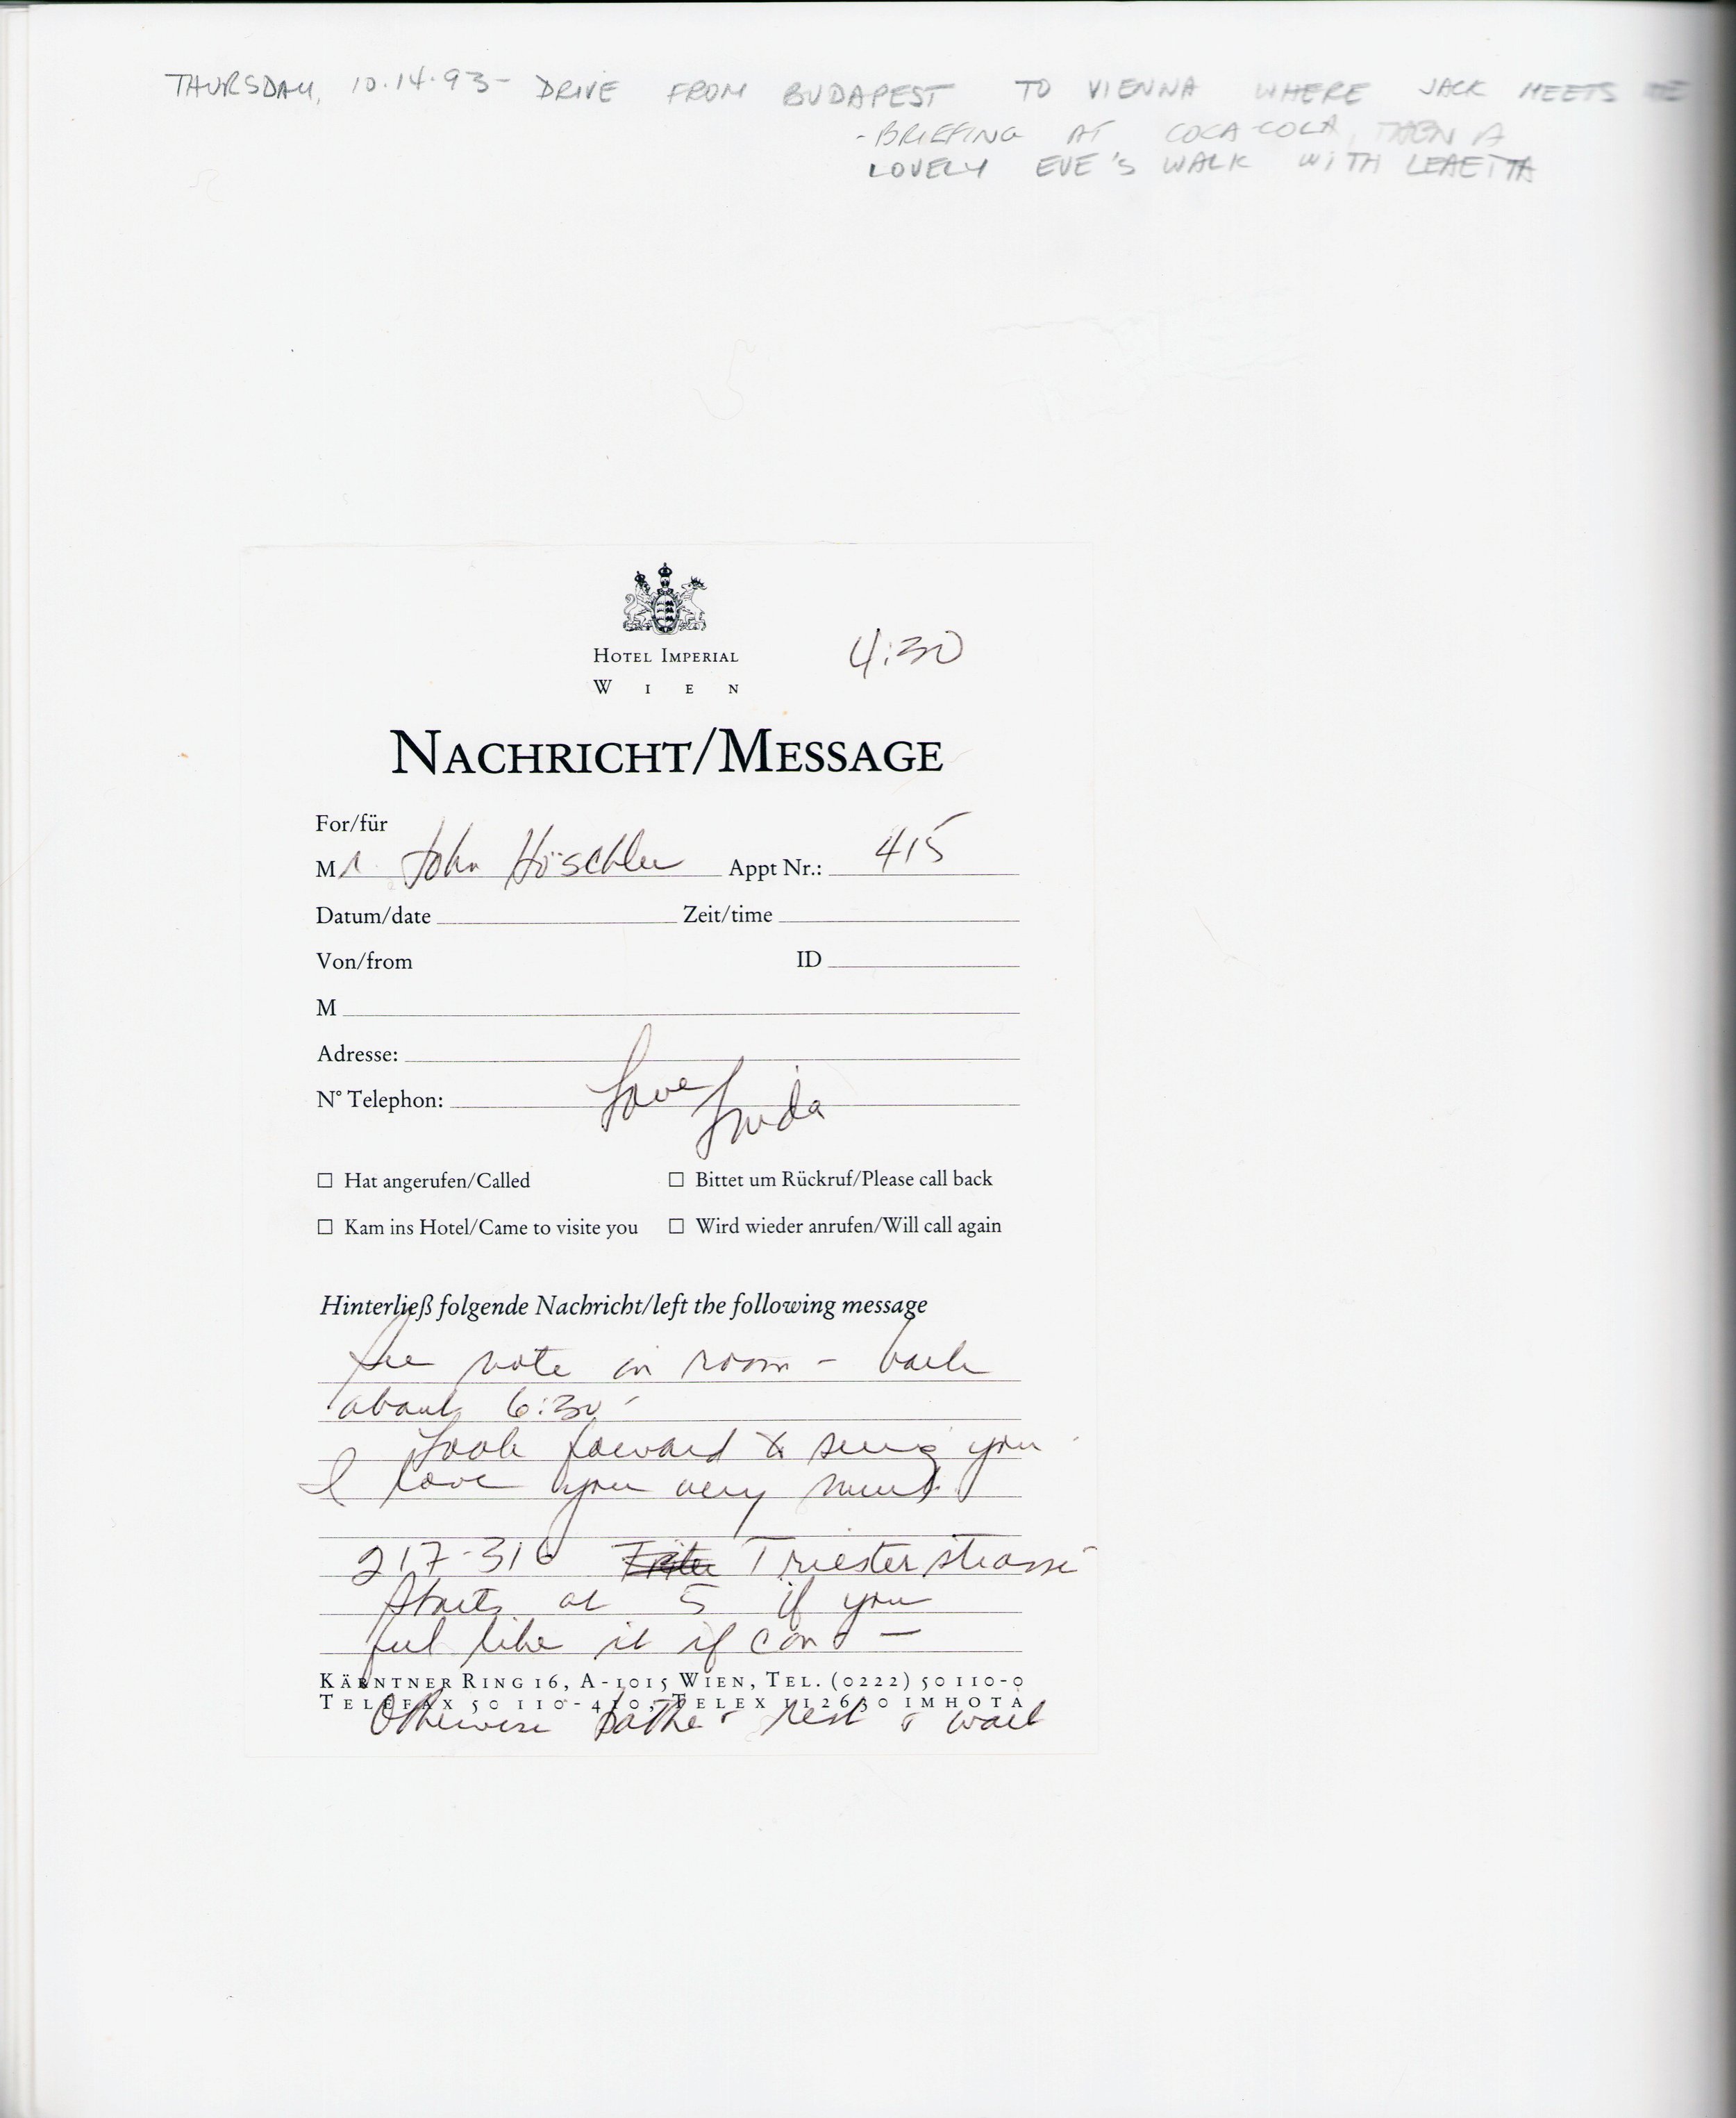 THURSDAY, 10.14.93- DRIVE FROM BUDAPEST TO VIENNA WHERE JACK MEETS ME
- BRIEFING AT COCA-COLA, THEN A
LOVELY EVE'S WALK WITH
HOTEL IMPERIAL
WIEN
4:30
NACHRICHT/MESSAGE
For/für
Mr. John Höschler Appt Nr.: 415
Datum/date Zeit/time
Von/from ID
M
Adresse:
N° Telephon: Love Linda
☐ Hat angerufen/Called ☐ Bittet um Rückruf/Please call back
☐ Kam ins Hotel/Came to visite you ☐ Wird wieder anrufen/Will call again
Hinterließ folgende Nachricht/left the following message
See note in room - back
about 6:30
Look forward to seeing you
I love you very much
217-316 Triesterstrasse
Starts at 5 if you
feel like it if
KÄRNTNER RING 16, A-1015 WIEN, TEL. (0222) 50 110-0
TELEFAX 50 110-410, TELEX 112630 IMHOTA
Otherwise bathe & rest & wait